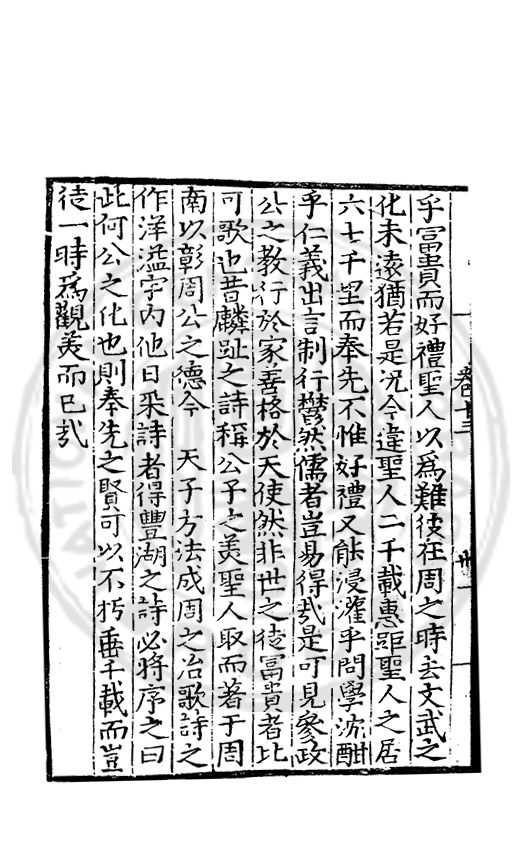 卷十三
世
乎冨貴而好禮聖人以爲難彼在周之時去文武之
化未逺猶若是况今違聖人二千載惠距聖人之居
六七千里而奉先不惟好禮又能浸灌乎問學沈酣
乎仁義出言制行欝然儒者豈易得㢤是可見參政
公之教行於家善格於天使然非世之徒冨貴者比
可歌也昔麟趾之詩稱公子之美聖人取而著于周
南以彰周公之德今　天子方法成周之治歌詩之
作洋溢宇内他日采詩者得豐湖之詩必将序之曰
此何公之化也則奉先之賢可以不朽垂千載而豈
徒一時爲觀美而已㢤